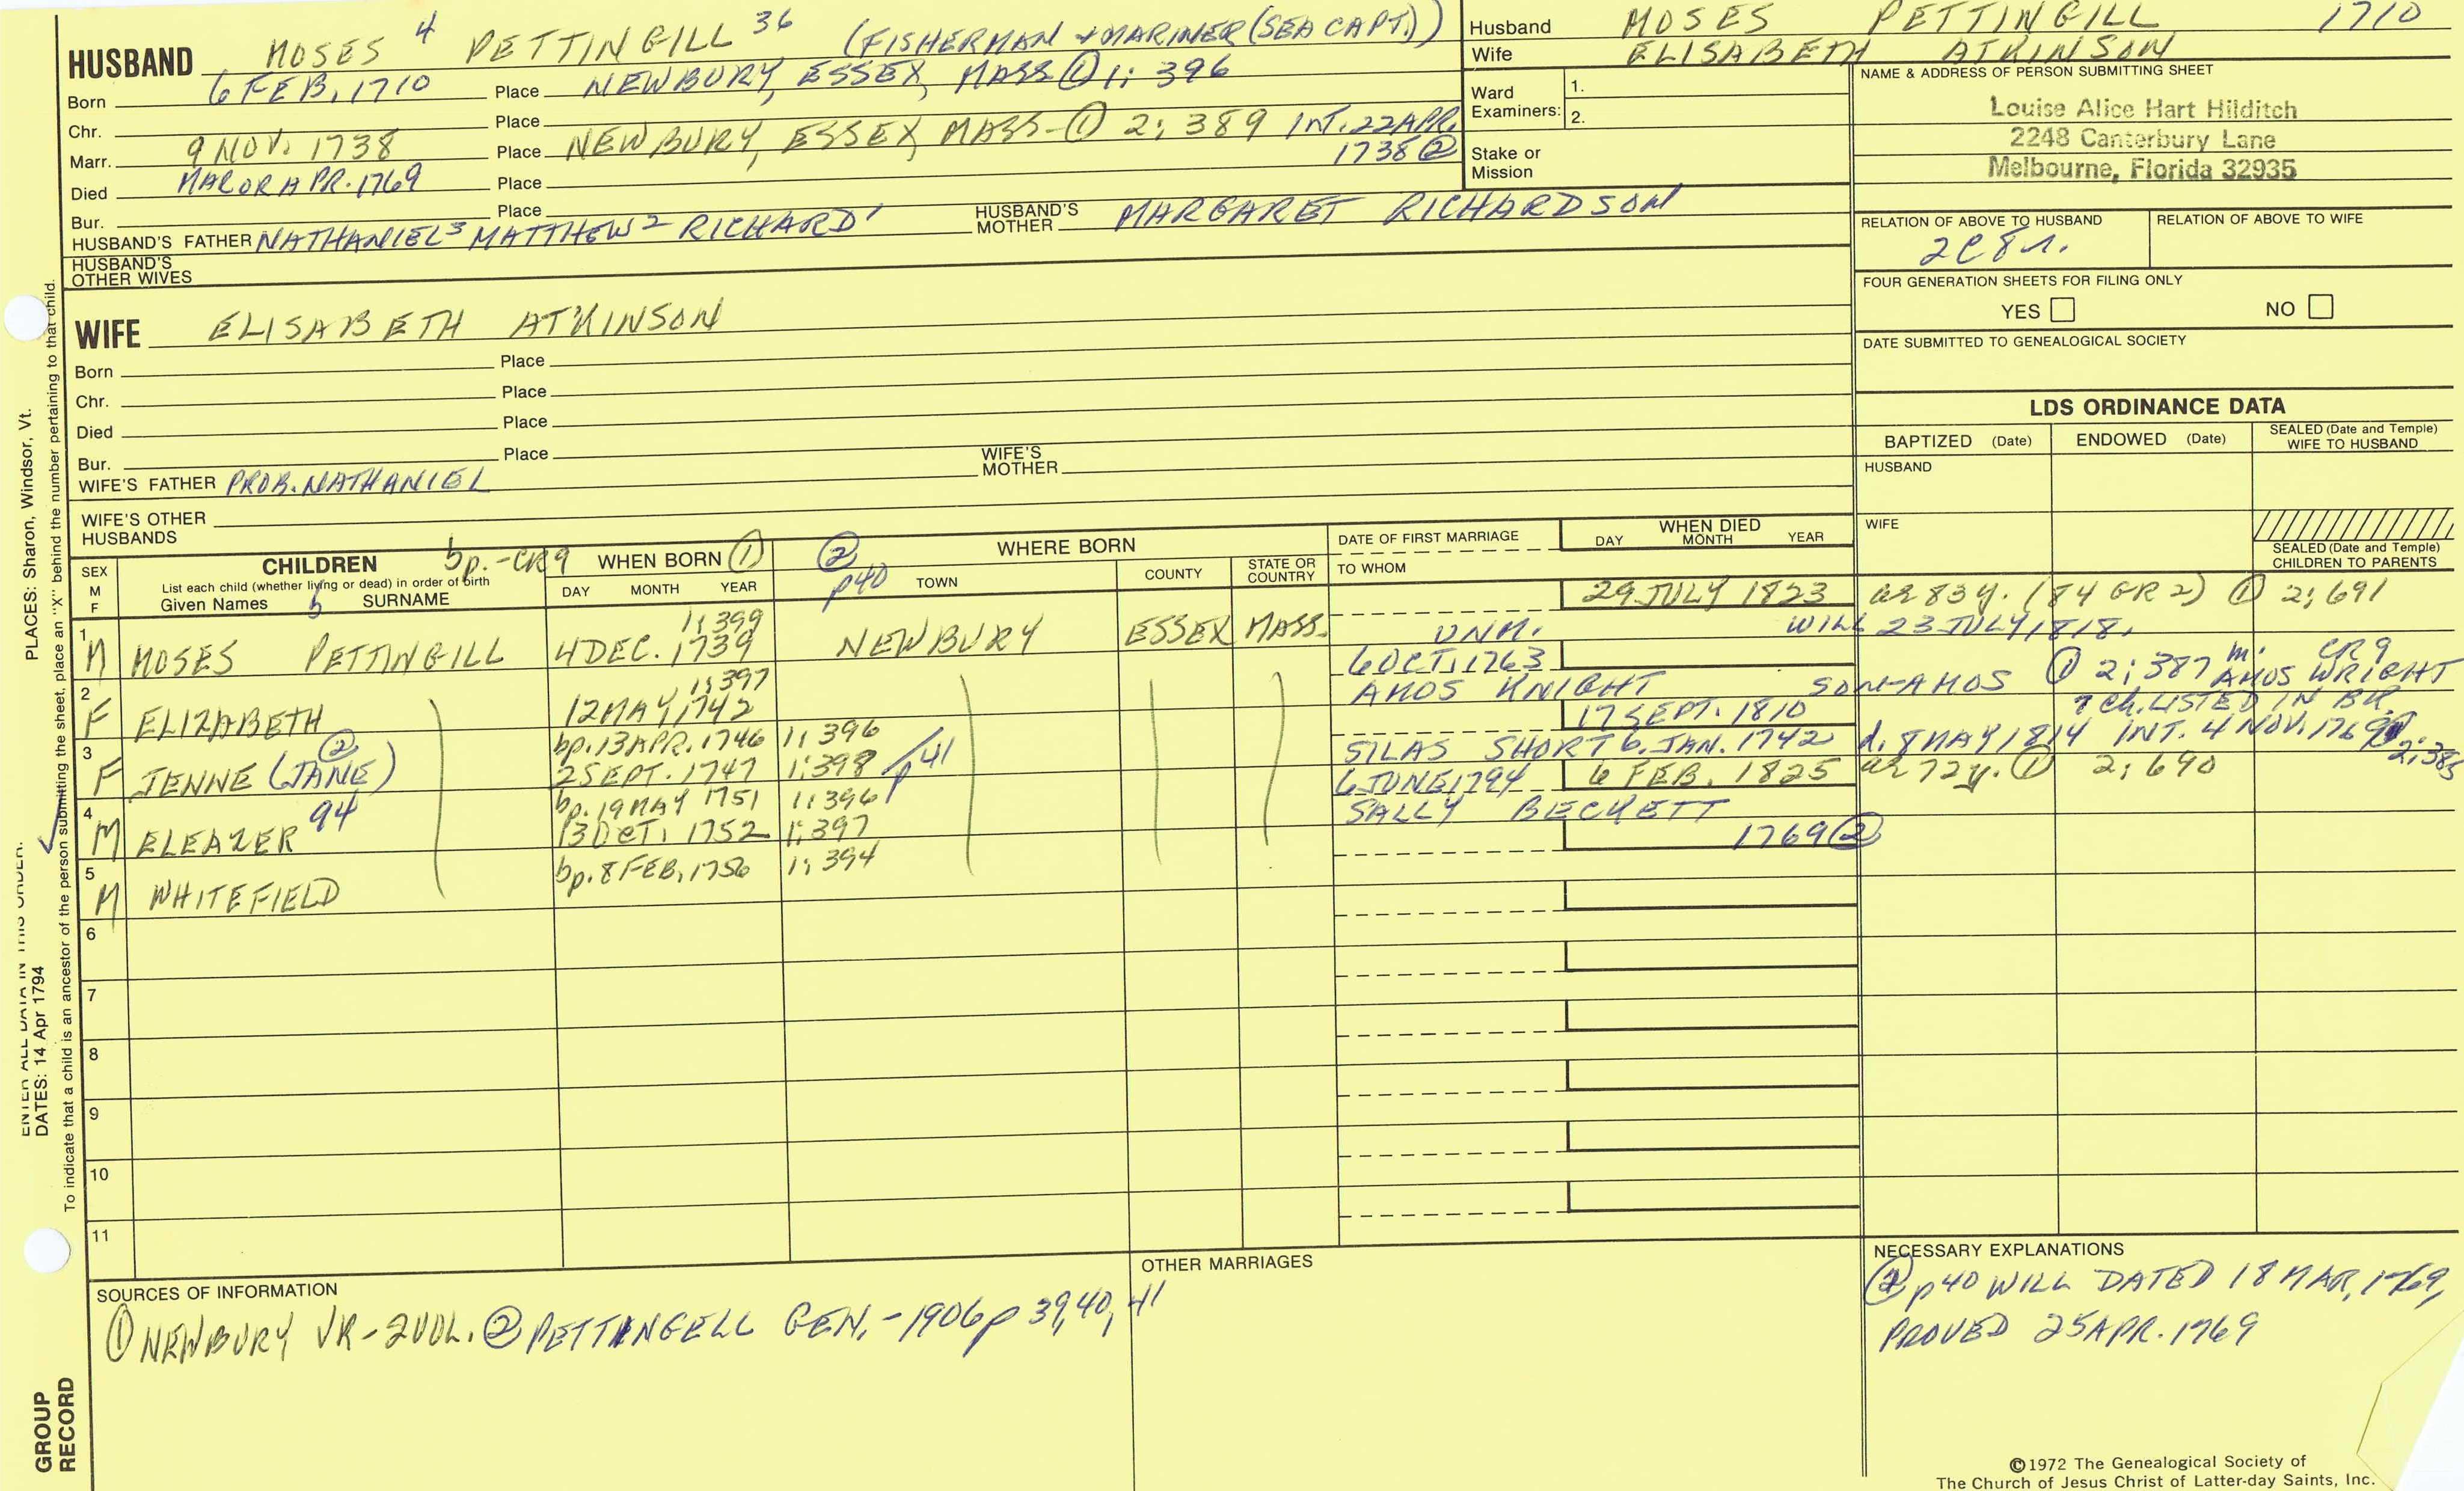 HUSBAND MOSES 4 PETTINGILL 36 (FISHERMAN + MARINER (SEA CAPT.))
Born 6 FEB. 1710 Place NEWBURY, ESSEX, MASS ① 1: 396
Chr. Place
Marr. 9 NOV. 1738 Place NEWBURY, ESSEX, MASS - ① 2: 389 INT. 22 APR. 1738 ②
Died MAR OR APR. 1769 Place
Bur. Place
HUSBAND'S FATHER NATHANIEL 3 MATTHEW 2 RICHARD 1 HUSBAND'S MOTHER MARGARET RICHARDSON
HUSBAND'S OTHER WIVES
Husband MOSES PETTINGILL 1710
Wife ELISABETH ATKINSON
Ward Examiners: 1.
2.
Stake or Mission
NAME & ADDRESS OF PERSON SUBMITTING SHEET
Louise Alice Hart Hilditch
2248 Canterbury Lane
Melbourne, Florida 32935
RELATION OF ABOVE TO HUSBAND RELATION OF ABOVE TO WIFE
2C8r.
FOUR GENERATION SHEETS FOR FILING ONLY
YES NO
DATE SUBMITTED TO GENEALOGICAL SOCIETY
WIFE ELISABETH ATKINSON
Born Place
Chr. Place
Died Place
Bur. Place
WIFE'S FATHER PROB. NATHANIEL WIFE'S MOTHER
WIFE'S OTHER HUSBANDS
LDS ORDINANCE DATA
BAPTIZED (Date) ENDOWED (Date) SEALED (Date and Temple) WIFE TO HUSBAND
HUSBAND
WIFE
SEALED (Date and Temple) CHILDREN TO PARENTS
SEX M F CHILDREN bp.-CR9 WHEN BORN ① ② p40 WHERE BORN DATE OF FIRST MARRIAGE WHEN DIED
List each child (whether living or dead) in order of birth
Given Names 5 SURNAME DAY MONTH YEAR TOWN COUNTY STATE OR COUNTRY TO WHOM DAY MONTH YEAR
29 JULY 1823 ae 83y. (84 GR2) ① 2; 691
1 M MOSES PETTINGILL 1: 399 4 DEC. 1739 NEWBURY ESSEX MASS. UNM. WILL 23 JULY 1818.
6 OCT. 1763 ① 2; 387 m. CR9
2 F ELIZABETH 1: 397 12 MAY, 1742 AMOS KNIGHT SON-AMOS AMOS WRIGHT
7 CH. LISTED IN BK.
17 SEPT. 1810
3 F JENNE (JANE) ② bp. 13 APR. 1746 1: 396 SILAS SHORT b. JAN. 1742 d. 8 MAY 1814 INT. 4 NOV. 1769 2: 385
2 SEPT. 1747 1: 398 p41 6 JUNE 1794 6 FEB. 1825 ae 72y. ① 2; 690
4 M ELEAZER 94 bp. 19 MAY 1751 1: 396 SALLY BECKETT
13 OCT. 1752 1: 397 1769 ②
5 M WHITEFIELD bp. 8 FEB. 1756 1: 394
6
7
8
9
10
11
SOURCES OF INFORMATION
① NEWBURY VR - 2 VOL. ② PETTINGELL GEN. - 1906 p 39, 40, 41
OTHER MARRIAGES
NECESSARY EXPLANATIONS
② p40 WILL DATED 18 MAR. 1769,
PROVED 25 APR. 1769
©1972 The Genealogical Society of
The Church of Jesus Christ of Latter-day Saints, Inc.
PLACES: Sharon, Windsor, Vt.
ENTER ALL DATA IN THIS ORDER:
DATES: 14 Apr 1794
To indicate that a child is an ancestor of the person submitting the sheet, place an "X" behind the number pertaining to that child.
GROUP
RECORD